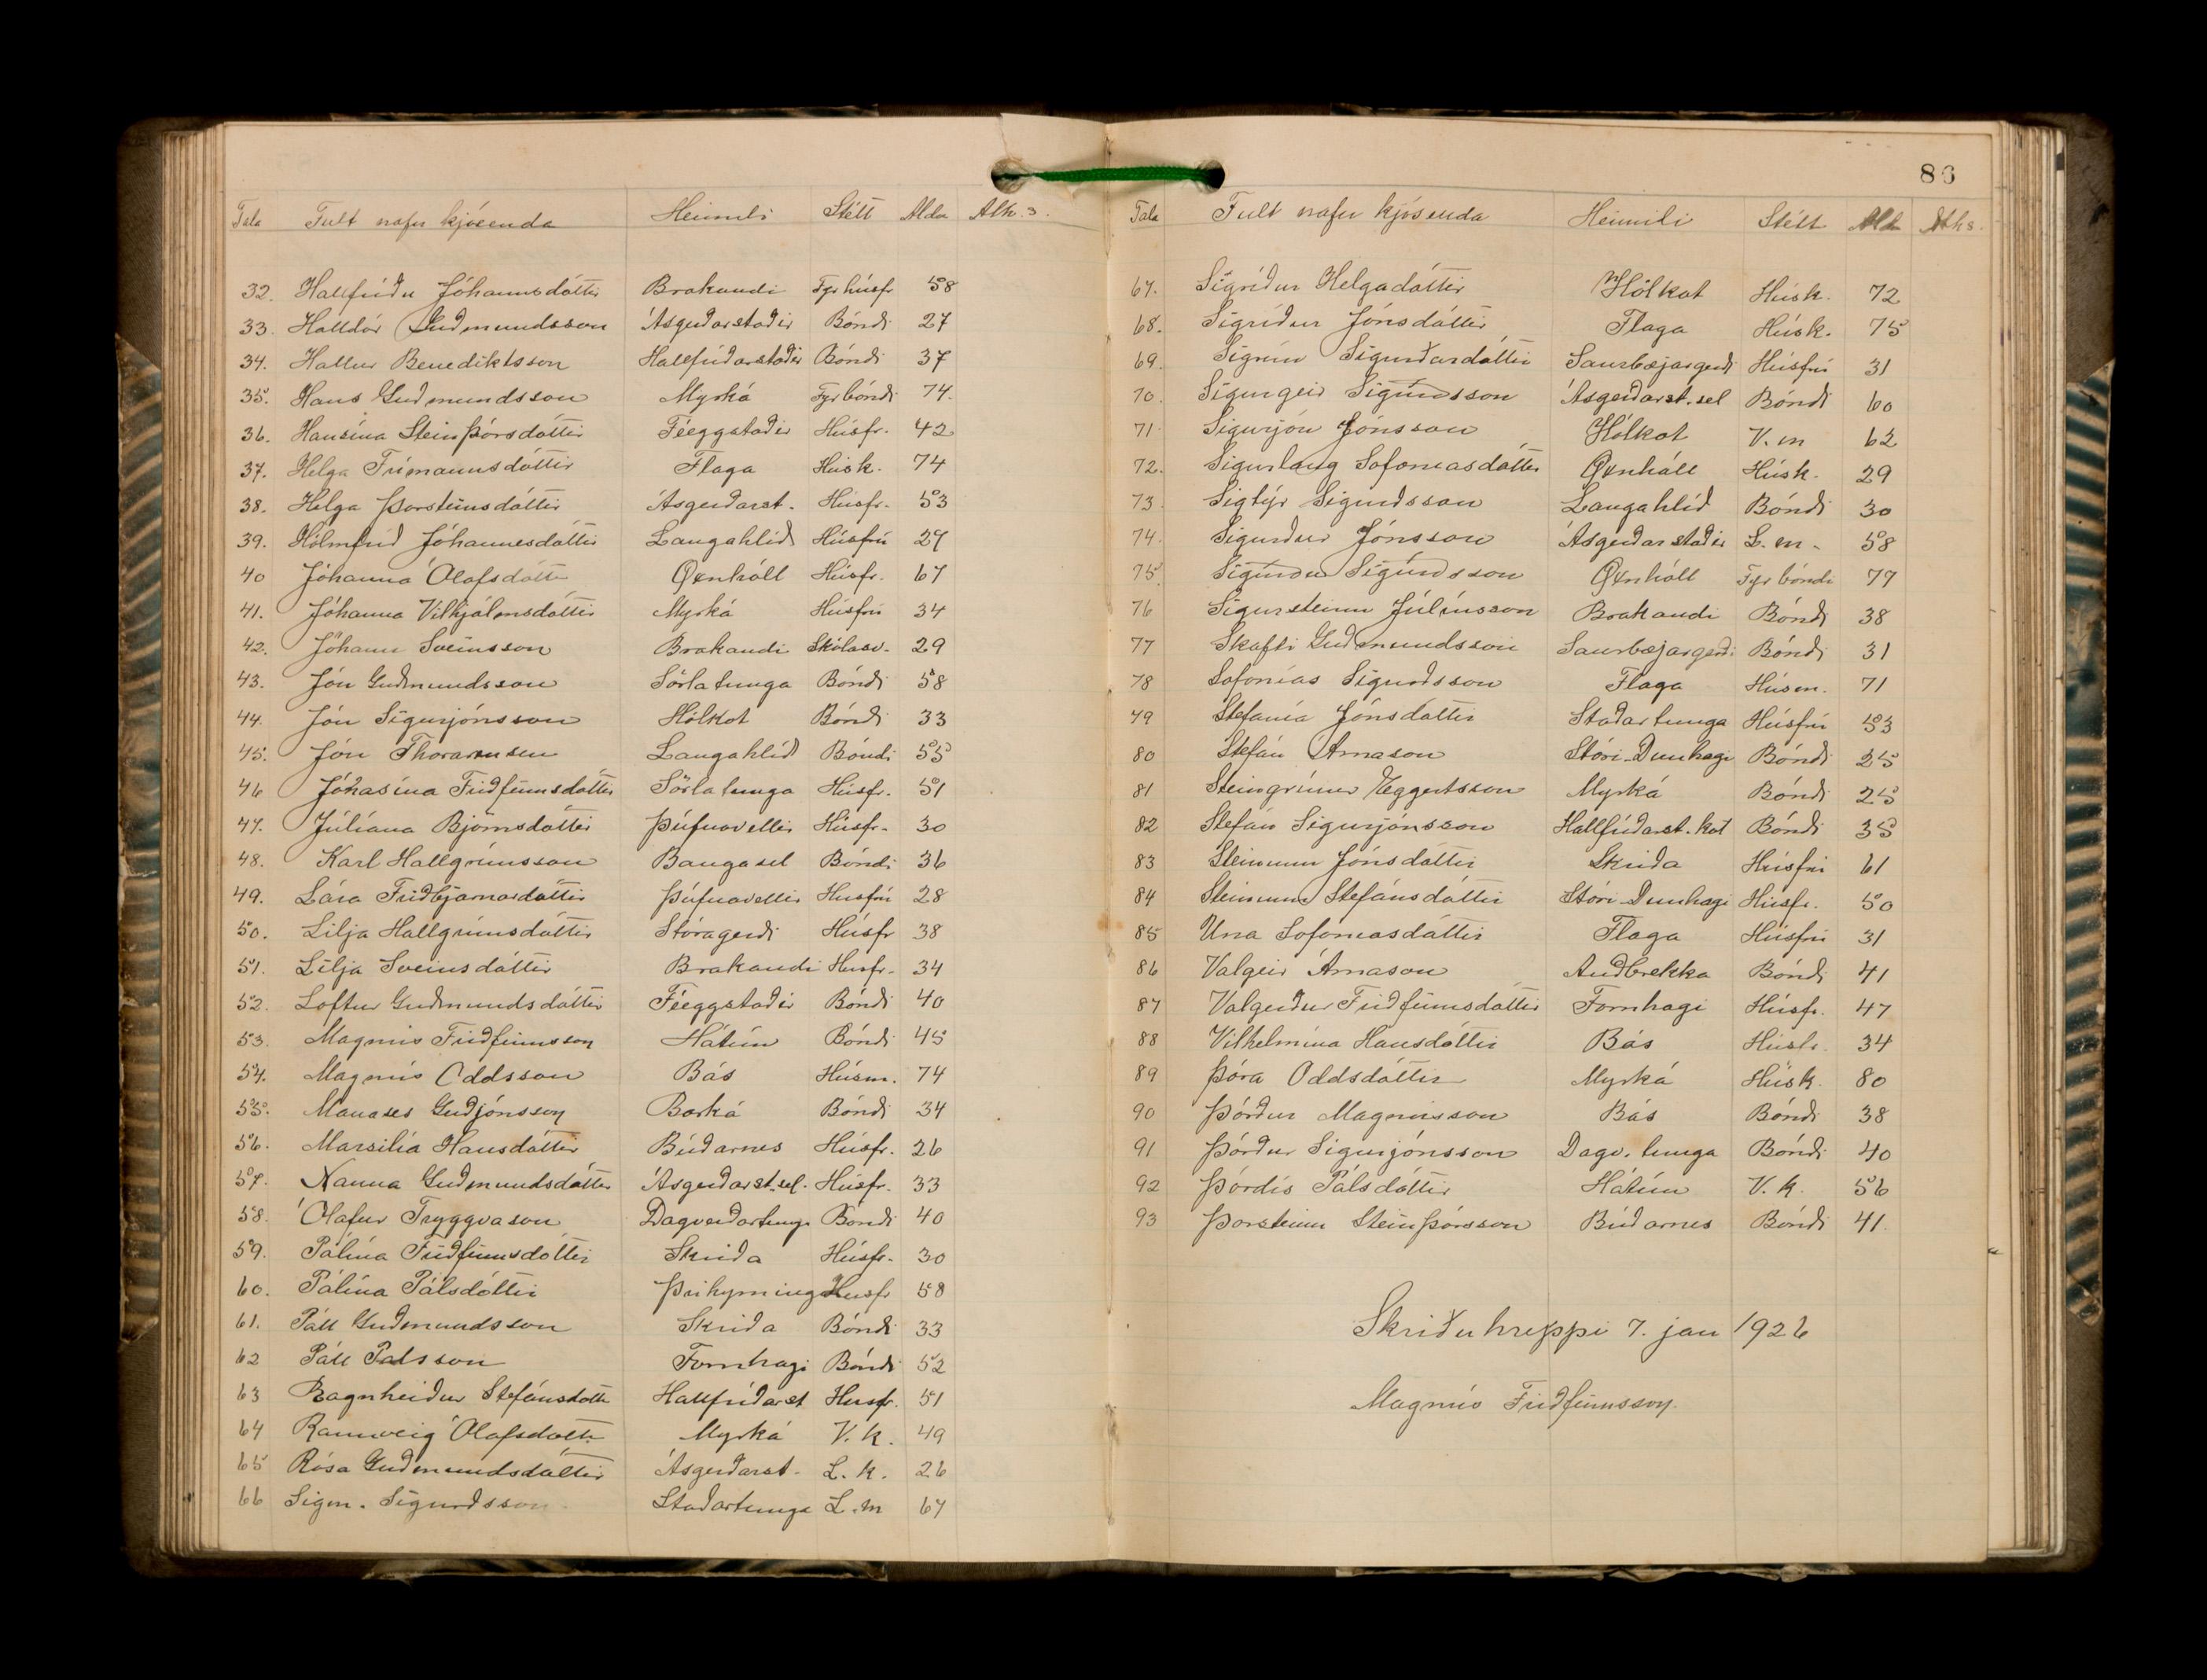 Tala Fult nafn kjósenda Heimili Stétt Aldur Ath.s.
32. Hallfríður Jóhannsdóttir Brakandi Fyr húsfr 58
33. Halldór Guðmundsson Ásgerðarstaðir Bóndi 27
34. Hallur Benediktsson Hallfríðarstaðir Bóndi 37
35. Hans Guðmundsson Myrká Fyr bóndi 74.
36. Hansína Steinþórsdóttir Féeggstaðir Húsfr. 42
37. Helga Frímannsdóttir Flaga Húsk. 74
38. Helga Þorsteinsdóttir Ásgerðarst. Húsfr. 53
39. Hólmfríð Jóhannesdóttir Langahlíð Húsfrú 29
40 Jóhanna Ólafsdóttir Öxnhóll Húsfr. 67
41. Jóhanna Vilhjálmsdóttir Myrká Húsfrú 34
42. Jóhann Sveinsson Brakandi Skólasv. 29
43. Jón Guðmundsson Sörlatunga Bóndi 58
44. Jón Sigurjónsson Hólkot Bóndi 33
45. Jón Thorarensen Langahlíð Bóndi 55
46 Jóhasína Friðfinnsdóttir Sörlatunga Húsfr. 51
47. Júlíana Björnsdóttir Þúfnavellir Húsfr. 30
48. Karl Hallgrímsson Baugasel Bóndi 36
49. Lára Friðbjarnardóttir Þúfnavellir Húsfrú 28
50. Lilja Hallgrímsdóttir Stóragerði Húsfr 38
51. Lilja Sveinsdóttir Brakandi Húsfr. 34
52. Loftur Guðmundsdóttir Féeggstaðir Bóndi 40
53. Magnús Friðfinnsson Hátún Bóndi 45
54. Magnús Oddsson Bás Húsm. 74
55. Manases Guðjónsson Barká Bóndi 34
56. Marsilía Hansdóttir Búðarnes Húsfr. 26
57. Nanna Guðmundsdóttir Ásgerðarst.sel. Húsfr. 33
58. Ólafur Tryggvason Dagverðartunga Bóndi 40
59. Pálína Friðfinnsdóttir Skriða Húsfr. 30
60. Pálína Pálsdóttir Þríhyrninga Húsfr 58
61. Páll Guðmundsson Skriða Bóndi 33
62 Páll Pálsson Fornhagi Bóndi 52
63 Ragnheiður Stefánsdóttir Hallfríðarst Húsfr. 51
64 Rannveig Ólafsdóttir Myrká V. k. 49
65 Rósa Guðmundsdóttir Ásgerðarst. L. k. 26
66 Sigm. Sigurðsson Staðartunga L. m 67
83
Tala Fult nafn kjósenda Heimili Stétt Ald. Aths.
67. Sigríður Helgadóttir Hólkot Húsk. 72
68. Sigríður Jónsdóttir Flaga Húsk. 75
69. Sigrún Sigurðardóttir Saurbæjargerði Húsfrú 31
70. Sigurgeir Sigurðsson Ásgerðarst.sel Bóndi 60
71. Sigurjón Jónsson Hólkot V. m 62
72. Sigurlaug Sofoníasdóttir Öxnhóll Húsk. 29
73. Sigtýr Sigurðsson Langahlíð Bóndi 30
74. Sigurður Jónsson Ásgerðarstaðir L. m. 58
75. Sigurður Sigurðsson Öxnhóll Fyr bóndi 77
76 Sigursteinn Júlíusson Brakandi Bóndi 38
77 Skafti Guðmundsson Saurbæjargerði Bóndi 31
78 Sofonías Sigurðsson Flaga Húsm. 71
79 Stefanía Jónsdóttir Staðartunga Húsfrú 53
80 Stefán Árnason Stóri-Dunhagi Bóndi 25
81 Steingrímur Eggertsson Myrká Bóndi 25
82 Stefán Sigurjónsson Hallfríðarst. kot Bóndi 35
83 Steinunn Jónsdóttir Skriða Húsfrú 61
84 Steinunn Stefánsdóttir Stóri-Dunhagi Húsfr. 50
85 Una Sofoníasdóttir Flaga Húsfrú 31
86 Valgeir Árnason Auðbrekka Bóndi 41
87 Valgerður Friðfinnsdóttir Fornhagi Húsfr. 47
88 Vilhelmína Hansdóttir Bás Húsfr. 34
89 Þóra Oddsdóttir Myrká Húsk. 80
90 Þórður Magnússon Bás Bóndi 38
91 Þórður Sigurjónsson Dagv. tunga Bóndi 40
92 Þórdís Pálsdóttir Hátún V. k. 56
93 Þorsteinn Steinþórsson Búðarnes Bóndi 41.
Skriðuhreppi 7. jan 1926
Magnús Friðfinnsson.